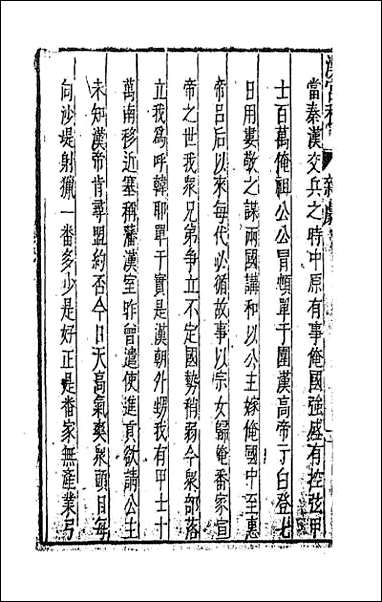 漢宮秋 雜劇
當秦漢交兵之時中原有事俺國強盛有控弦甲
士百萬俺祖公公冐頓單于圍漢高帝于白登七
日用婁敬之謀兩國講和以公主嫁俺國中至惠
帝吕后以來每代必循故事以宗女歸俺番家宣
帝之世我衆兄弟争立不定國勢稍弱今衆部落
立我爲呼韓耶單于實是漢朝外甥我有甲士十
萬南移近塞稱藩漢室昨曾遣使進貢欲請公主
未知漢帝肯尋盟約否今日天高氣爽衆頭目每
向沙堤射獵一番多少是好正是番家無產業弓